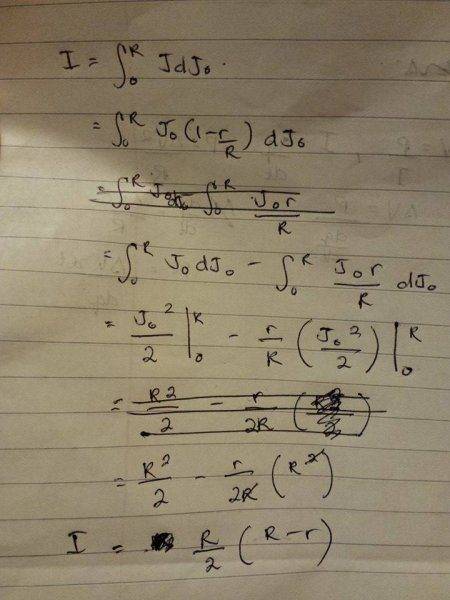 I = ∫₀ᴿ J dJ₀.
= ∫₀ᴿ J₀ (1 - r/R) dJ₀
= ∫₀ᴿ J₀ - ∫₀ᴿ J₀r/R
= ∫₀ᴿ J₀ dJ₀ - ∫₀ᴿ J₀r/R dJ₀
= J₀²/2 |₀ᴿ - r/R (J₀²/2) |₀ᴿ
= R²/2 - r/2R (
= R²/2 - r/2R (R²)
I = R/2 (R - r)